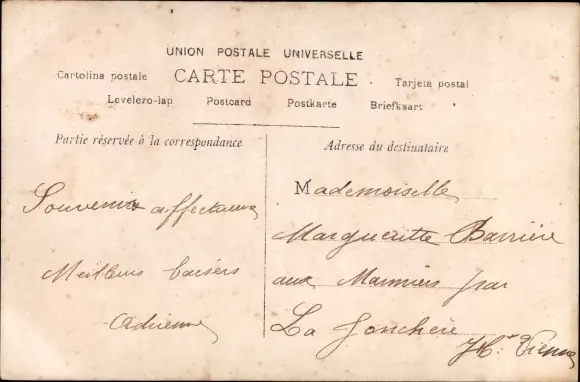 UNION POSTALE UNIVERSELLE
Cartolina postale CARTE POSTALE Tarjeta postal
Levelezo-lap Postcard Postkarte Briefkaart
Partie réservée à la correspondance
Souvenir affectueux
Meilleurs baisers
Adrienne
Adresse du destinataire
Mademoiselle
Margueritte Barrière
aux Marmiers par
La Jonchère
Hte Vienne